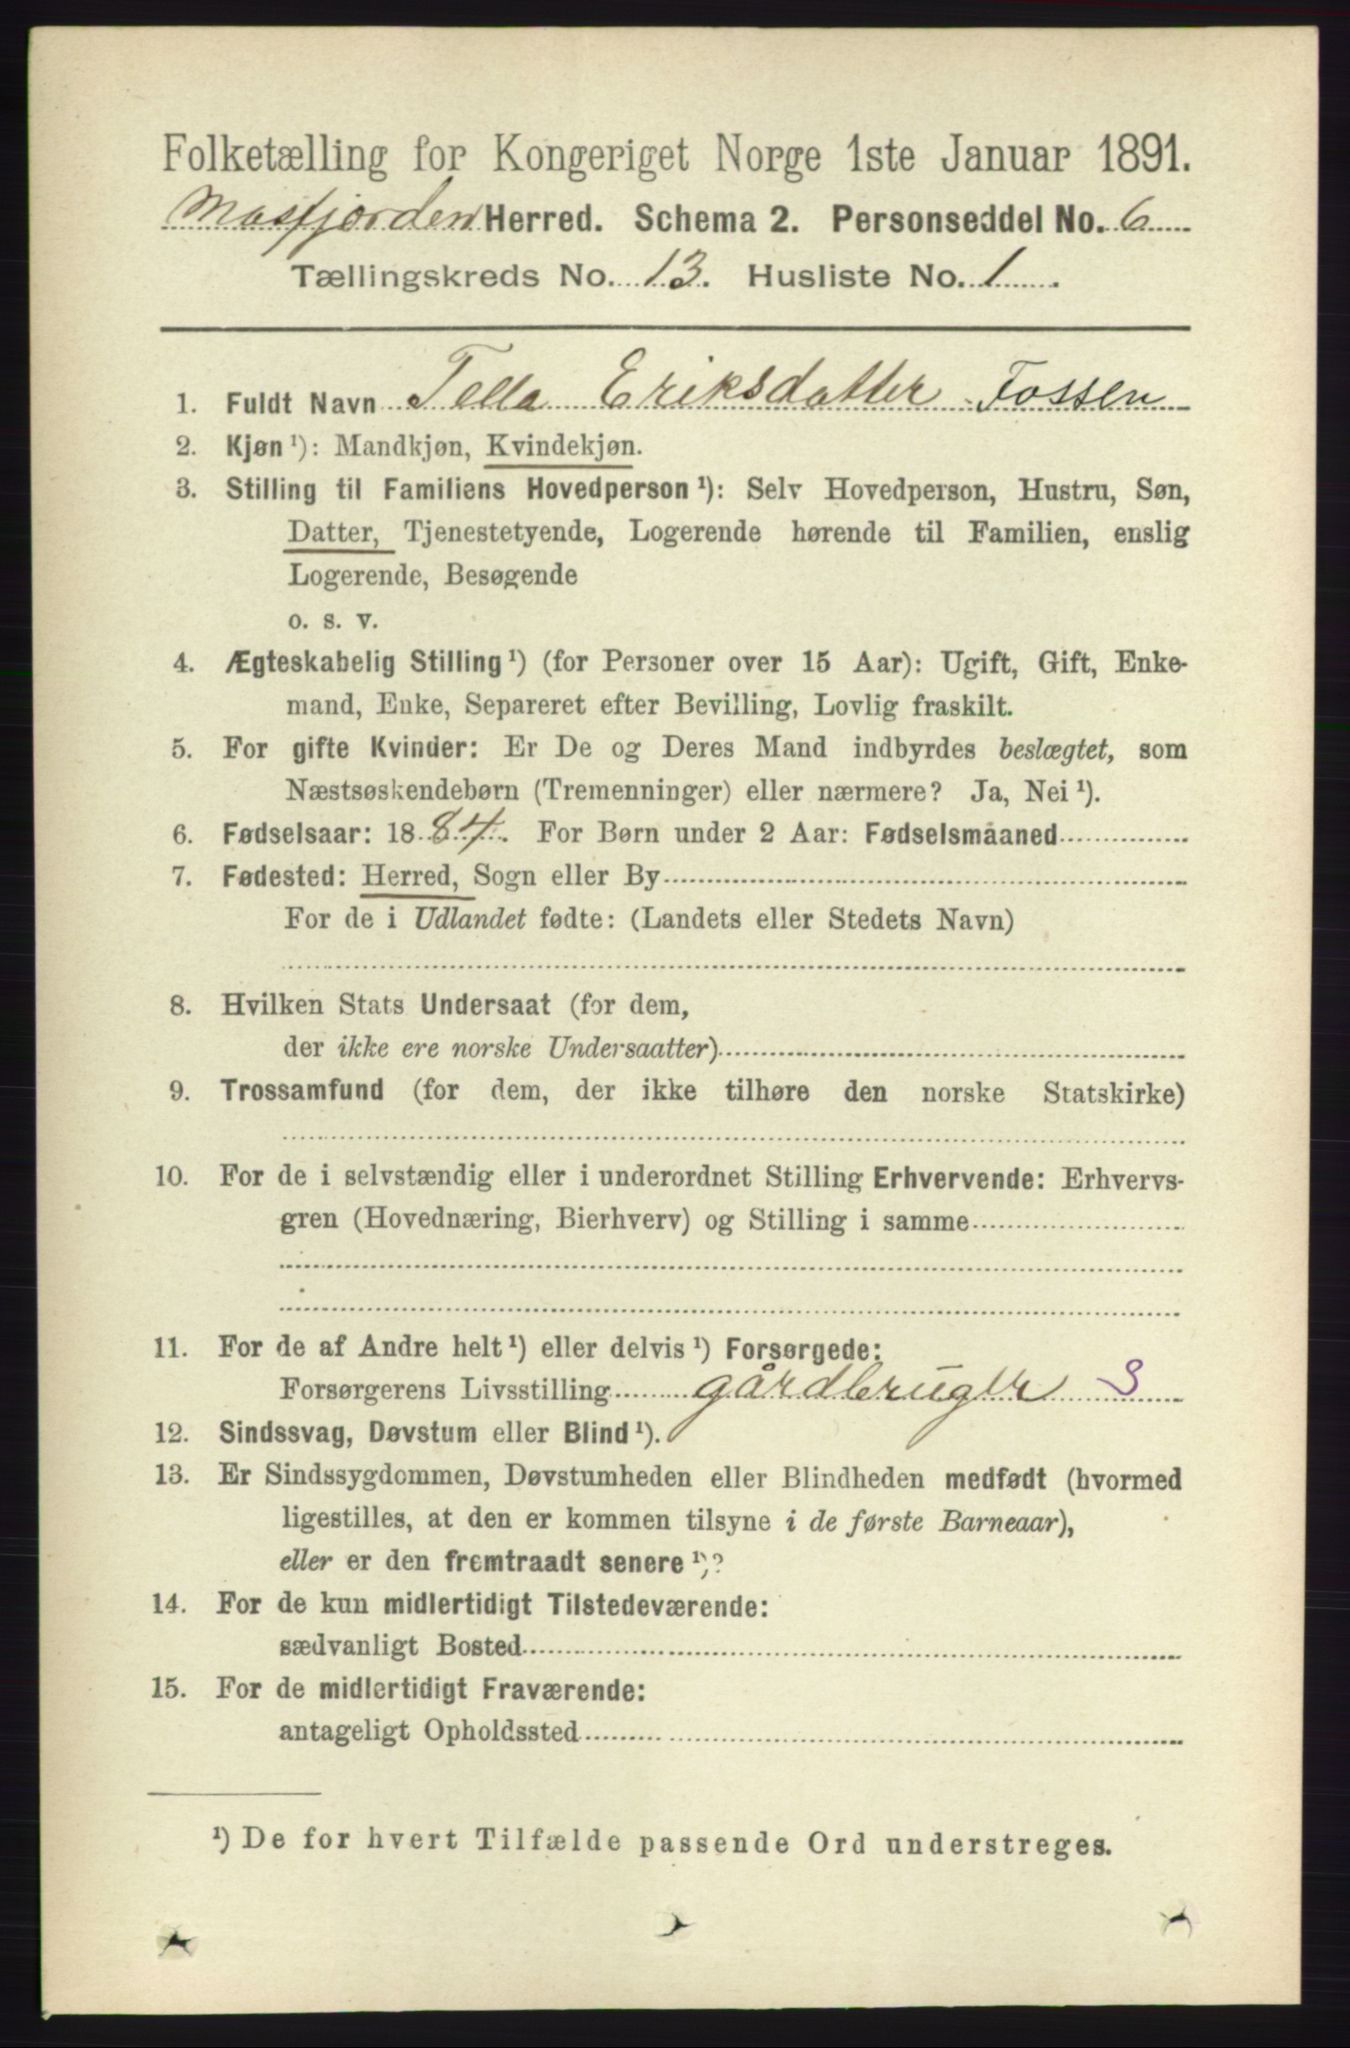 Folketælling for Kongeriget Norge 1ste Januar 1891.
Masfjorden Herred. Schema 2. Personseddel No. 6
Tællingskreds No. 13. Husliste No. 1.
1. Fuldt Navn Tella Eriksdatter Fossen
2. Kjøn ¹): Mandkjøn, Kvindekjøn.
3. Stilling til Familiens Hovedperson ¹): Selv Hovedperson, Hustru, Søn,
Datter, Tjenestetyende, Logerende hørende til Familien, enslig
Logerende, Besøgende
o. s. v.
4. Ægteskabelig Stilling ¹) (for Personer over 15 Aar): Ugift, Gift, Enke-
mand, Enke, Separeret efter Bevilling, Lovlig fraskilt.
5. For gifte Kvinder: Er De og Deres Mand indbyrdes beslægtet, som
Næstsøskendebørn (Tremenninger) eller nærmere? Ja, Nei ¹).
6. Fødselsaar: 1884. For Børn under 2 Aar: Fødselsmaaned
7. Fødested: Herred, Sogn eller By
For de i Udlandet fødte: (Landets eller Stedets Navn)
8. Hvilken Stats Undersaat (for dem,
der ikke ere norske Undersaatter)
9. Trossamfund (for dem, der ikke tilhøre den norske Statskirke)
10. For de i selvstændig eller i underordnet Stilling Erhvervende: Erhvervs-
gren (Hovednæring, Bierhverv) og Stilling i samme
11. For de af Andre helt ¹) eller delvis ¹) Forsørgede:
Forsørgerens Livsstilling gårdbruger S
12. Sindssvag, Døvstum eller Blind ¹).
13. Er Sindssygdommen, Døvstumheden eller Blindheden medfødt (hvormed
ligestilles, at den er kommen tilsyne i de første Barneaar),
eller er den fremtraadt senere ¹)?
14. For de kun midlertidigt Tilstedeværende:
sædvanligt Bosted
15. For de midlertidigt Fraværende:
antageligt Opholdssted
¹) De for hvert Tilfælde passende Ord understreges.